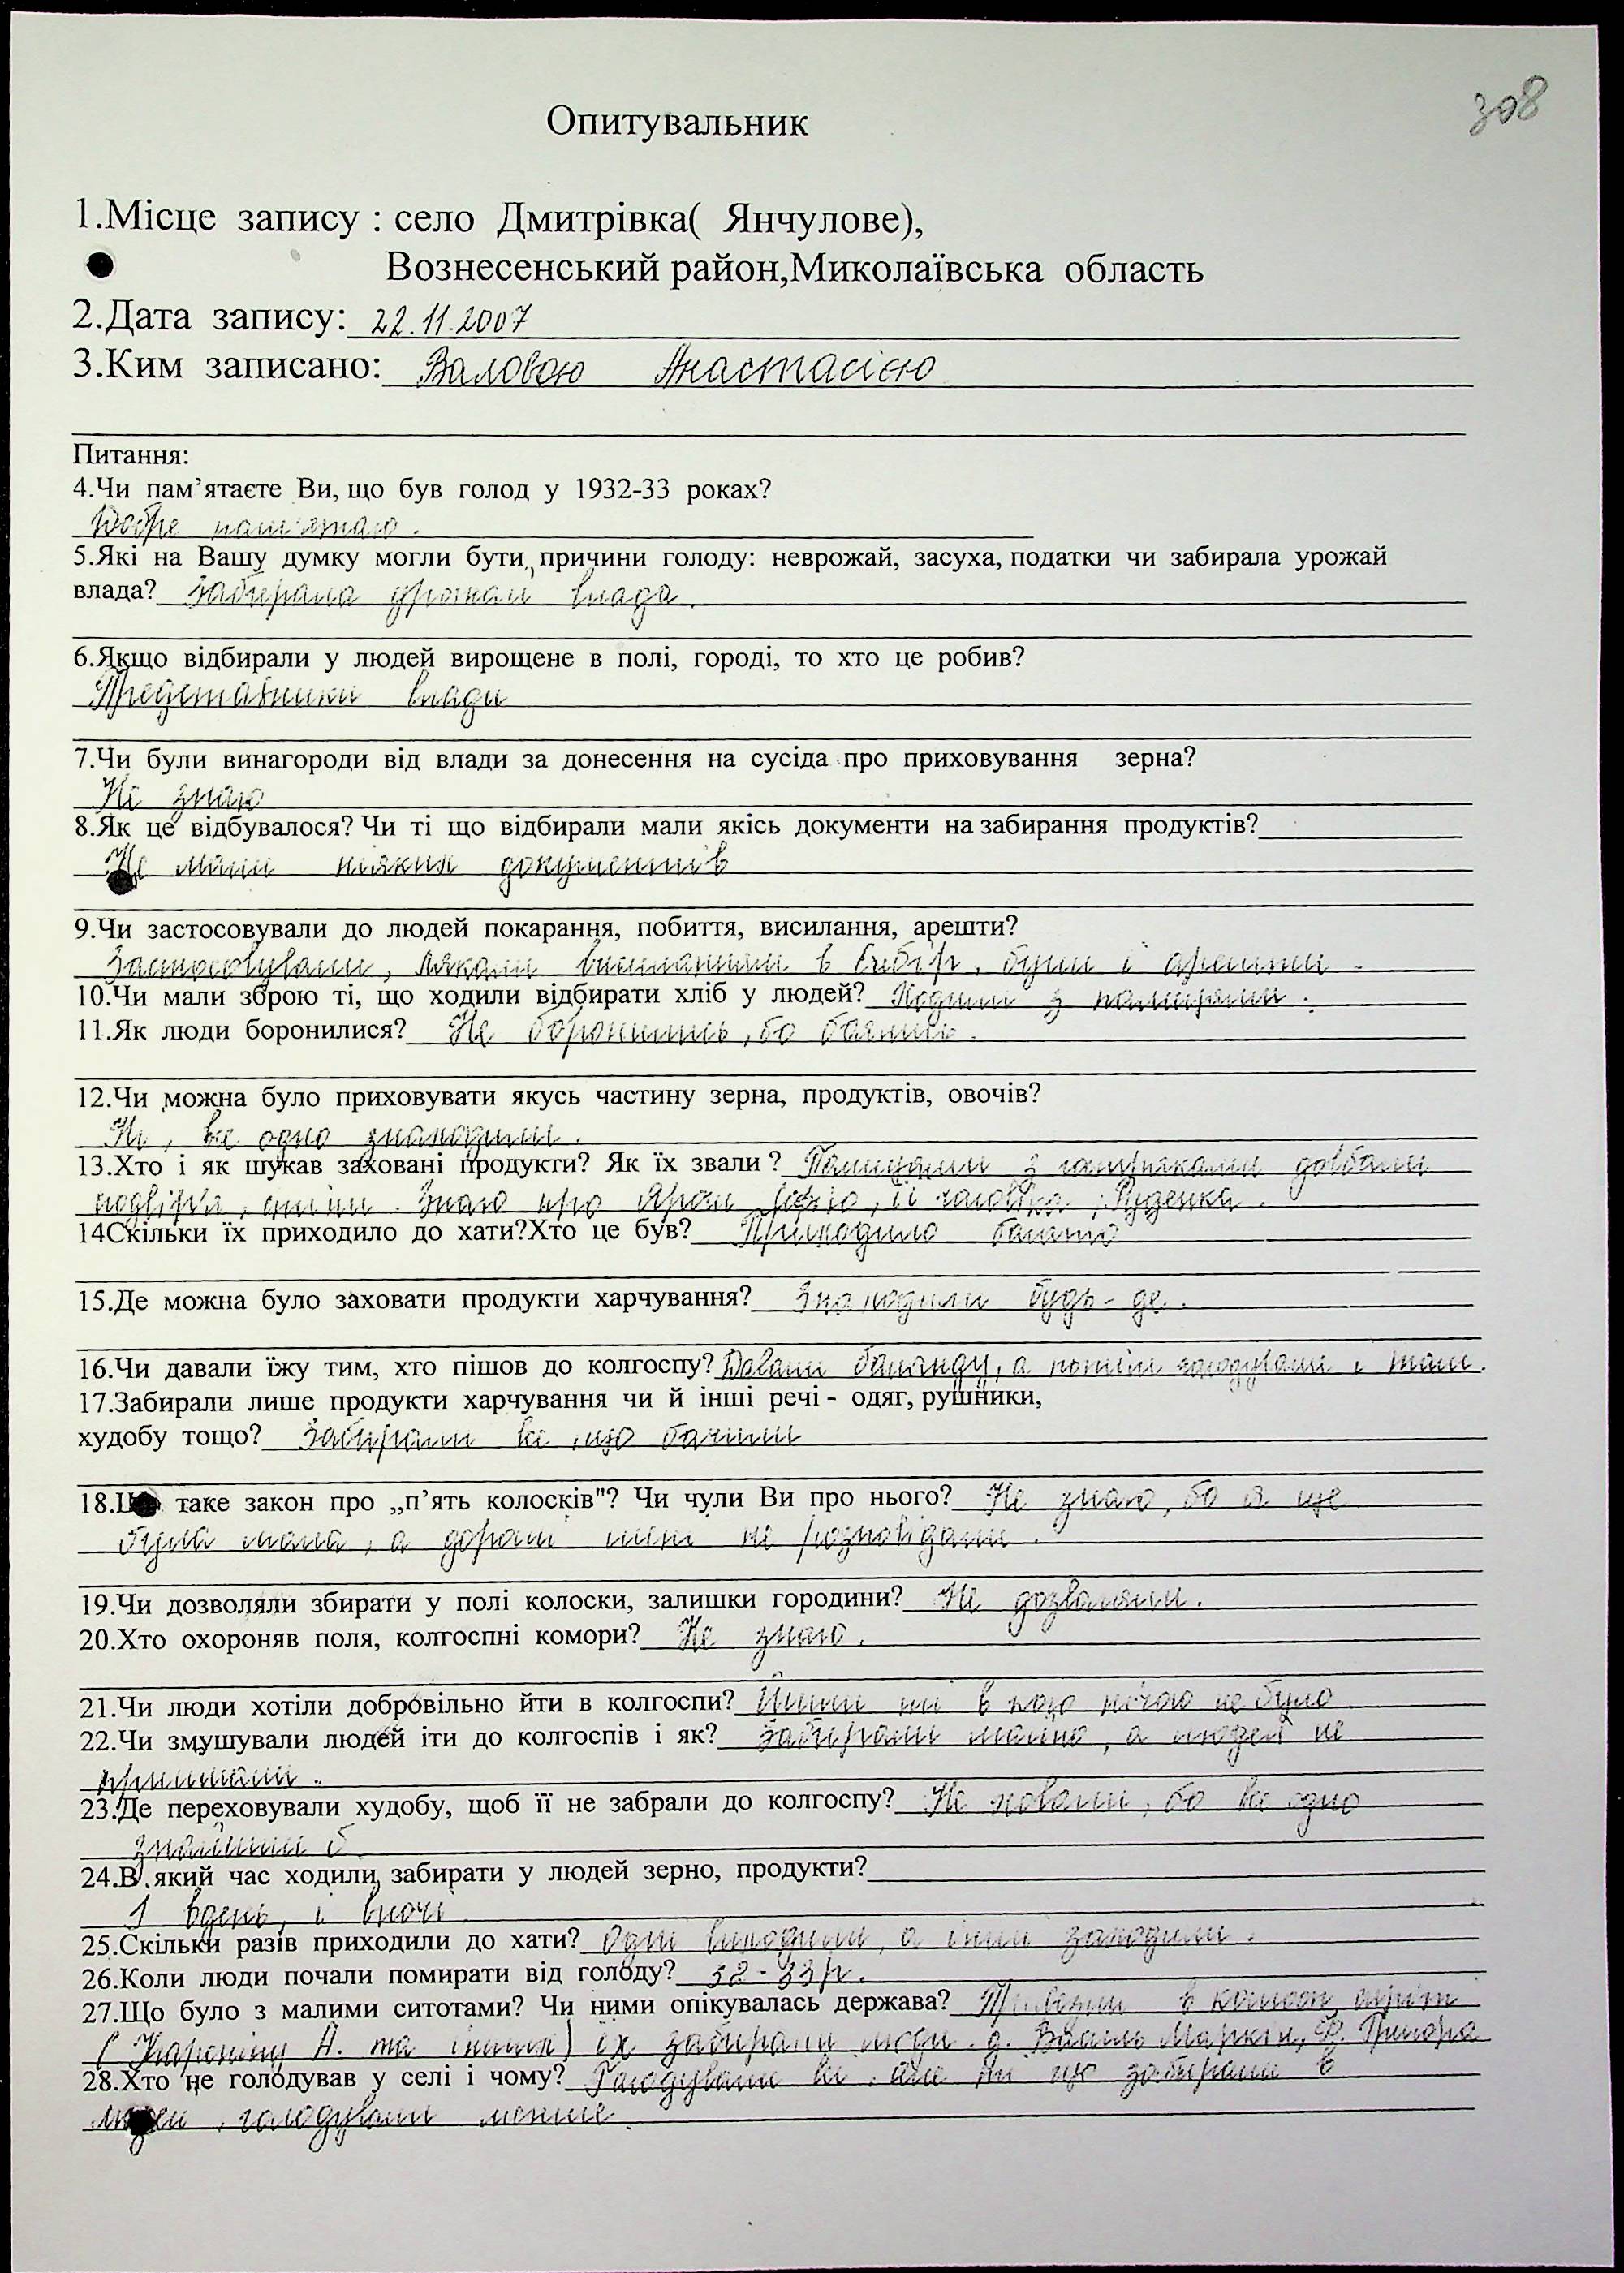 308
Опитувальник
1.Місце запису : село Дмитрівка( Янчулове),
Вознесенський район,Миколаївська область
2.Дата запису: 22.11.2007
3.Ким записано: Валовою Анастасією
Питання:
4.Чи пам’ятаєте Ви, що був голод у 1932-33 роках?
Добре пам'ятаю.
5.Які на Вашу думку могли бути причини голоду: неврожай, засуха, податки чи забирала урожай
влада? Забирала урожай влада.
6.Якщо відбирали у людей вирощене в полі, городі, то хто це робив?
Представники влади
7.Чи були винагороди від влади за донесення на сусіда про приховування зерна?
Не знаю
8.Як це відбувалося? Чи ті що відбирали мали якісь документи на забирання продуктів?
Не мали ніяких документів
9.Чи застосовували до людей покарання, побиття, висилання, арешти?
Застосовували, лякали висиланням в Сибір, були і арешти.
10.Чи мали зброю ті, що ходили відбирати хліб у людей? Ходили з палицями.
11.Як люди боронилися? Не боронились, бо боялись.
12.Чи можна було приховувати якусь частину зерна, продуктів, овочів?
Ні, все одно знаходили.
13.Хто і як шукав заховані продукти? Як їх звали ? Палицями з довбали
подвір'я, стіни. Знаю про її чоловіка, Руденка.
14Скільки їх приходило до хати?Хто це був? Приходило багато
15.Де можна було заховати продукти харчування? Знаходили будь-де.
16.Чи давали їжу тим, хто пішов до колгоспу? Давали баланду, а потім голодували і там.
17.Забирали лише продукти харчування чи й інші речі - одяг, рушники,
худобу тощо? Забирали все, що бачили
18.Що таке закон про „п’ять колосків"? Чи чули Ви про нього? Не знаю, бо я ще
була мала, а дорослі мені не розповідали.
19.Чи дозволяли збирати у полі колоски, залишки городини? Не дозволяли.
20.Хто охороняв поля, колгоспні комори? Не знаю.
21.Чи люди хотіли добровільно йти в колгоспи? Йшли ті в кого нічого не було
22.Чи змушували людей іти до колгоспів і як? Забирали майно, а людей не
приймали.
23.Де переховували худобу, щоб її не забрали до колгоспу? Не ховали, бо все одно
знайшли б.
24.В який час ходили забирати у людей зерно, продукти?
І вдень, і вночі.
25.Скільки разів приходили до хати? Одні виходили, а інші заходили.
26.Коли люди почали помирати від голоду? 32-33р.
27.Що було з малими ситотами? Чи ними опікувалась держава? Привезли в колгосп сиріт
( А. та інших) їх забирали люди. д. Василь Маркін, Григора
28.Хто не голодував у селі і чому? Голодували всі, але ті що забирали в
людей, голодували менше.